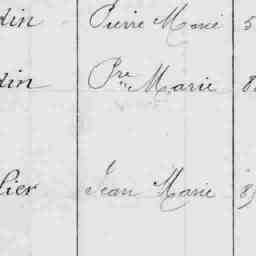 din Pierre Marie 5
din Pre Marie 8
lier Jean Marie 8